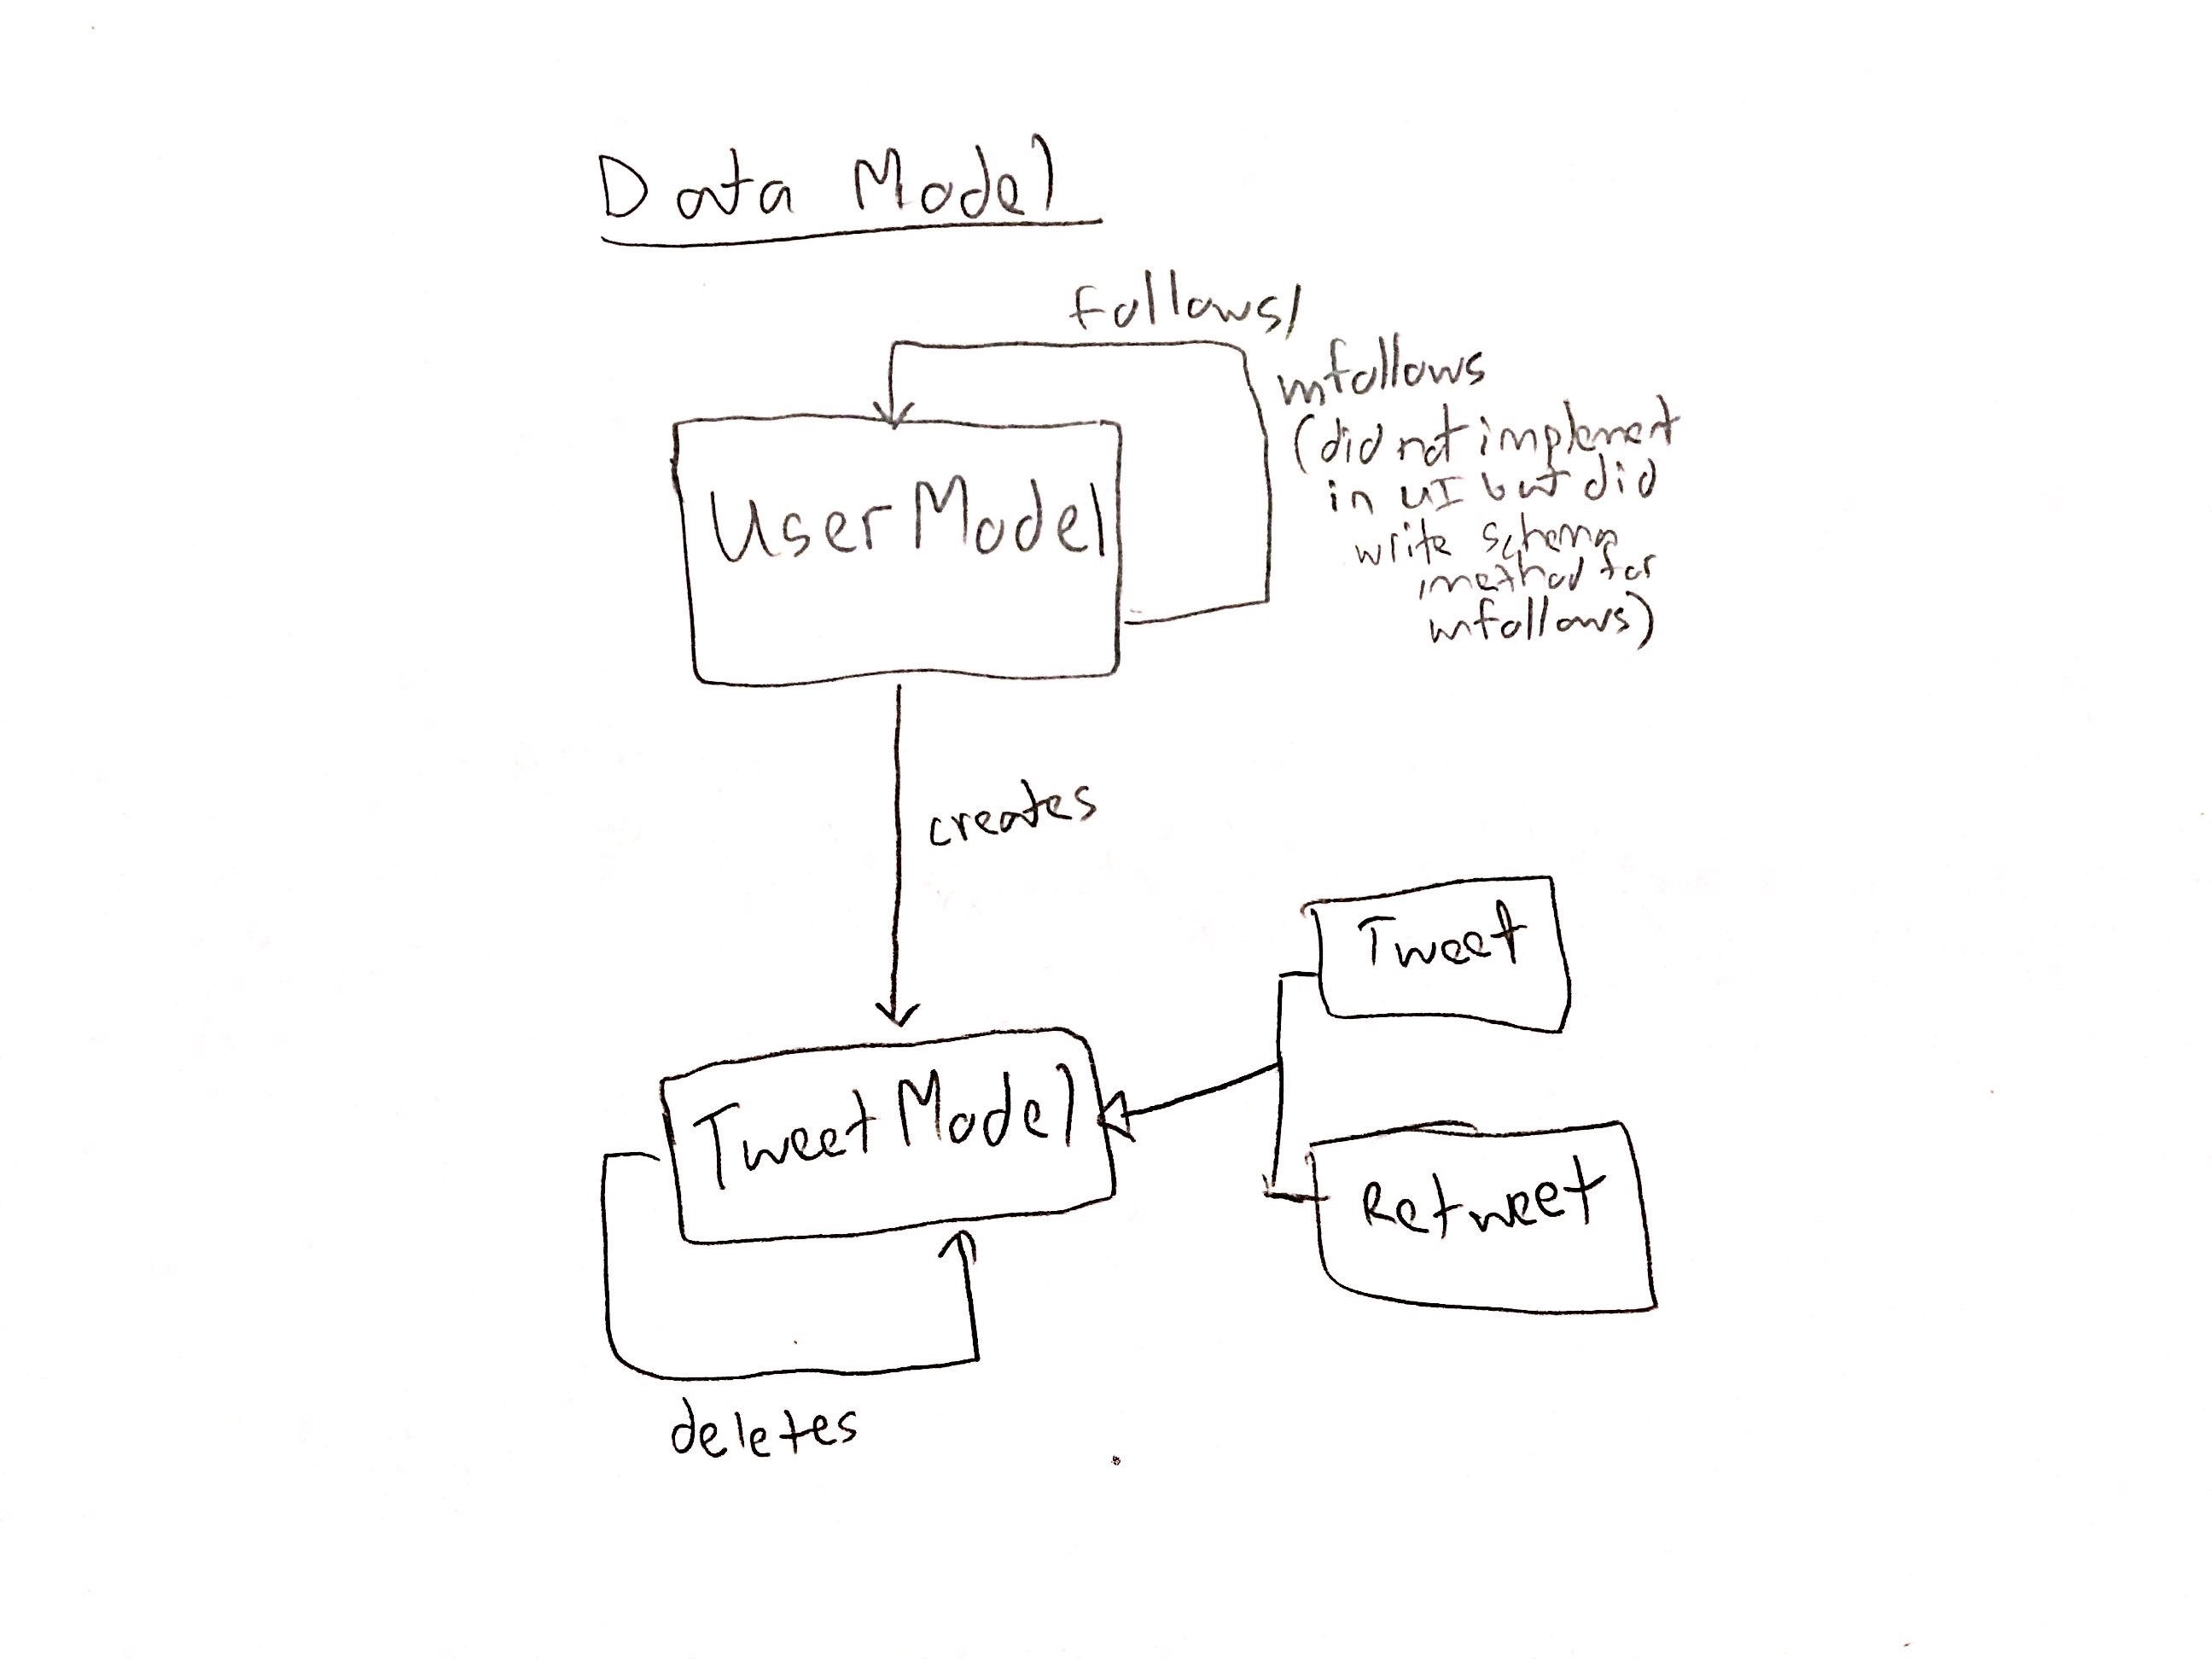 Data Model
follows/
unfollows
(did not implement
in UI but did
write schema
method for
unfollows)
UserModel
creates
Tweet
TweetModel
Retweet
deletes